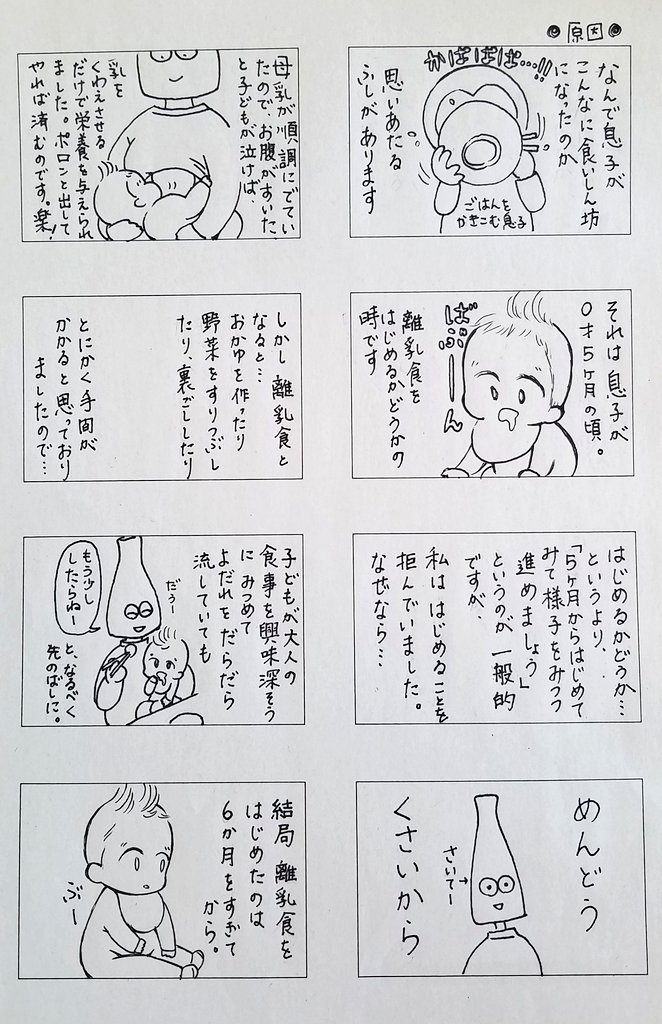 ◉原因◉
なんで息子が
こんなに食いしん坊
になったのか
かばばば…!!
思いあたる
ふしがあります
ごはんを
かきこむ息子
それは息子が
0才5ヶ月の頃。
ばぶーーん
離乳食を
はじめるかどうかの
時です
はじめるかどうか…
というより、
「5ヶ月からはじめて
みて様子をみつつ
進めましょう」
というのが一般的
ですが、
私ははじめることを
拒んでいました。
なぜなら…
めんどう
くさいから
さいてー→
母乳が順調にでてい
たので、お腹がすいた、
と子どもが泣けば
乳を
くわえさせる
だけで栄養を与えられ
ました。ポロンと出して
やれば済むのです。楽!
しかし離乳食と
なると…
おかゆを作ったり
野菜をすりつぶし
たり、裏ごししたり
とにかく手間が
かかると思っており
ましたので…
子どもが大人の
食事を興味深そう
にみつめて
よだれをだらだら
流していても
だぅー
もう少し
したらねー
と、なるべく
先のばしに。
結局離乳食を
はじめたのは
6か月をすぎて
から。
ぶー